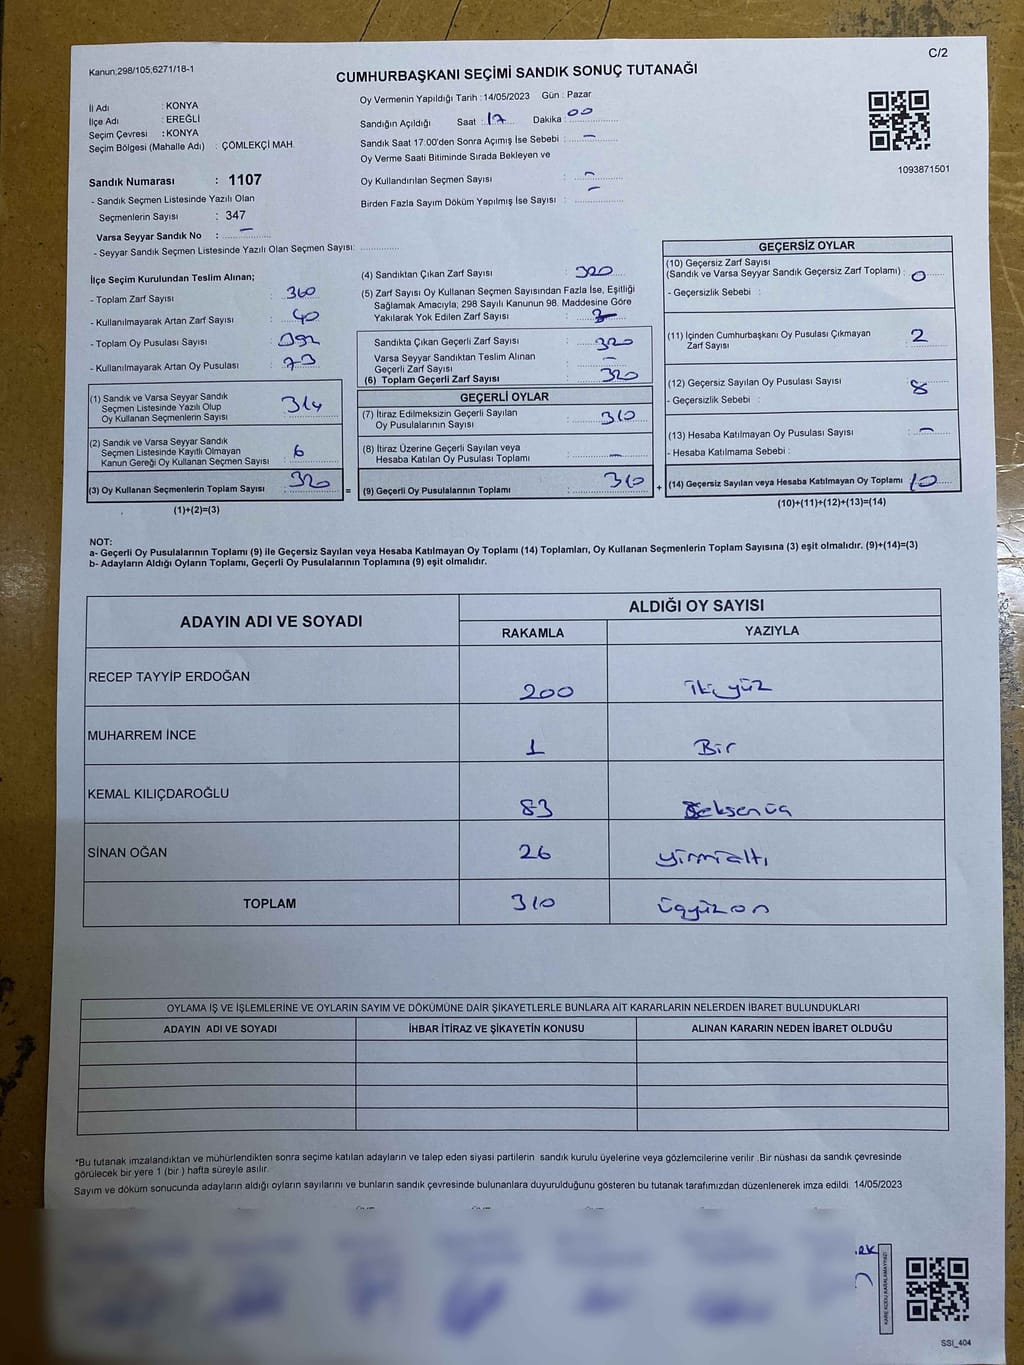 C/2
Kanun;298/105;6271/18-1
CUMHURBAŞKANI SEÇİMİ SANDIK SONUÇ TUTANAĞI
İl Adı : KONYA
İlçe Adı : EREĞLİ
Seçim Çevresi : KONYA
Seçim Bölgesi (Mahalle Adı) : ÇÖMLEKÇİ MAH.
Sandık Numarası : 1107
- Sandık Seçmen Listesinde Yazılı Olan
Seçmenlerin Sayısı : 347
Varsa Seyyar Sandık No : –
- Seyyar Sandık Seçmen Listesinde Yazılı Olan Seçmen Sayısı:
Oy Vermenin Yapıldığı Tarih : 14/05/2023 Gün : Pazar
Sandığın Açıldığı Saat : 17 Dakika : 00
Sandık Saat 17:00'den Sonra Açımış İse Sebebi : –
Oy Verme Saati Bitiminde Sırada Bekleyen ve
Oy Kullandırılan Seçmen Sayısı : –
Birden Fazla Sayım Döküm Yapılmış İse Sayısı : –
1093871501
İlçe Seçim Kurulundan Teslim Alınan;
- Toplam Zarf Sayısı : 360
- Kullanılmayarak Artan Zarf Sayısı : 40
- Toplam Oy Pusulası Sayısı : 392
- Kullanılmayarak Artan Oy Pusulası : 73
(1) Sandık ve Varsa Seyyar Sandık
Seçmen Listesinde Yazılı Olup
Oy Kullanan Seçmenlerin Sayısı : 314
(2) Sandık ve Varsa Seyyar Sandık
Seçmen Listesinde Kayıtlı Olmayan
Kanun Gereği Oy Kullanan Seçmen Sayısı : 6
(3) Oy Kullanan Seçmenlerin Toplam Sayısı : 320 =
(1)+(2)=(3)
(4) Sandıktan Çıkan Zarf Sayısı : 320
(5) Zarf Sayısı Oy Kullanan Seçmen Sayısından Fazla İse, Eşitliği
Sağlamak Amacıyla; 298 Sayılı Kanunun 98. Maddesine Göre
Yakılarak Yok Edilen Zarf Sayısı :
Sandıkta Çıkan Geçerli Zarf Sayısı : 320
Varsa Seyyar Sandıktan Teslim Alınan
Geçerli Zarf Sayısı : –
(6) Toplam Geçerli Zarf Sayısı : 320
GEÇERLİ OYLAR
(7) İtiraz Edilmeksizin Geçerli Sayılan
Oy Pusulalarının Sayısı : 310
(8) İtiraz Üzerine Geçerli Sayılan veya
Hesaba Katılan Oy Pusulası Toplamı : –
(9) Geçerli Oy Pusulalarının Toplamı : 310 +
GEÇERSİZ OYLAR
(10) Geçersiz Zarf Sayısı
(Sandık ve Varsa Seyyar Sandık Geçersiz Zarf Toplamı) : 0
- Geçersizlik Sebebi :
(11) İçinden Cumhurbaşkanı Oy Pusulası Çıkmayan
Zarf Sayısı : 2
(12) Geçersiz Sayılan Oy Pusulası Sayısı : 8
- Geçersizlik Sebebi :
(13) Hesaba Katılmayan Oy Pusulası Sayısı : –
- Hesaba Katılmama Sebebi :
(14) Geçersiz Sayılan veya Hesaba Katılmayan Oy Toplamı : 10
(10)+(11)+(12)+(13)=(14)
NOT:
a- Geçerli Oy Pusulalarının Toplamı (9) ile Geçersiz Sayılan veya Hesaba Katılmayan Oy Toplamı (14) Toplamları, Oy Kullanan Seçmenlerin Toplam Sayısına (3) eşit olmalıdır. (9)+(14)=(3)
b- Adayların Aldığı Oyların Toplamı, Geçerli Oy Pusulalarının Toplamına (9) eşit olmalıdır.
ADAYIN ADI VE SOYADI ALDIĞI OY SAYISI
RAKAMLA YAZIYLA
RECEP TAYYİP ERDOĞAN 200 iki yüz
MUHARREM İNCE 1 Bir
KEMAL KILIÇDAROĞLU 83 Seksenüç
SİNAN OĞAN 26 yirmialtı
TOPLAM 310 üçyüzon
OYLAMA İŞ VE İŞLEMLERİNE VE OYLARIN SAYIM VE DÖKÜMÜNE DAİR ŞİKAYETLERLE BUNLARA AİT KARARLARIN NELERDEN İBARET BULUNDUKLARI
ADAYIN ADI VE SOYADI İHBAR İTİRAZ VE ŞİKAYETİN KONUSU ALINAN KARARIN NEDEN İBARET OLDUĞU
*Bu tutanak imzalandıktan ve mühürlendikten sonra seçime katılan adayların ve talep eden siyasi partilerin sandık kurulu üyelerine veya gözlemcilerine verilir .Bir nüshası da sandık çevresinde
görülecek bir yere 1 (bir ) hafta süreyle asılır.
Sayım ve döküm sonucunda adayların aldığı oyların sayılarını ve bunların sandık çevresinde bulunanlara duyurulduğunu gösteren bu tutanak tarafımızdan düzenlenerek imza edildi. 14/05/2023
KARE KODU KARALAMAYINIZ!
SSI_404